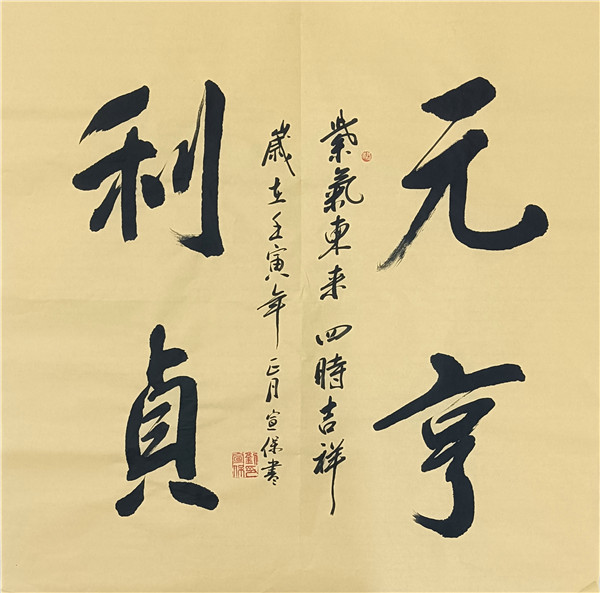 元亨
利貞
紫氣東来 四時吉祥
歲在壬寅年 正月宣保書